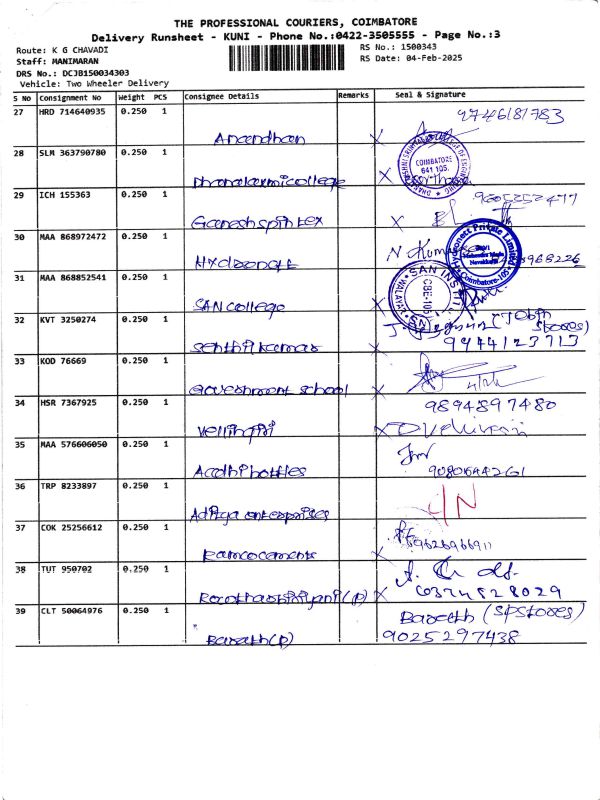 THE PROFESSIONAL COURIERS, COIMBATORE
Delivery Runsheet - KUNI - Phone No.:0422-3505555 - Page No.:3
Route: K G CHAVADI RS No.: 1500343
Staff: MANIMARAN RS Date: 04-Feb-2025
DRS No.: DCJB150034303
Vehicle: Two Wheeler Delivery
S No Consignment No Weight PCS Consignee Details Remarks Seal & Signature
27 HRD 714640935 0.250 1 9746181783
Anandhan X
28 SLM 363790780 0.250 1 COIMBATORE 641 105.
Dhanalaxmicollege X
29 ICH 155363 0.250 1
Ganesh spintex X
30 MAA 868972472 0.250 1 N Kum
31 MAA 868852541 0.250 1 SAN INSTIT CBE-105
SAN college X
32 KVT 3250274 0.250 1 (Jobin Stores)
Senthilkumar 9944123713
33 KOD 76669 0.250 1
Government school X
34 HSR 7367925 0.250 1 9894897480
Vellingiri X
35 MAA 576606050 0.250 1
Aadhi bottles
36 TRP 8233897 0.250 1
Aditya enterprises
37 COK 25256612 0.250 1 9626966911
Ramcocements X
38 TUT 950702 0.250 1
X
39 CLT 50064976 0.250 1 Barath (SPStores)
Barath(P) 9025297438